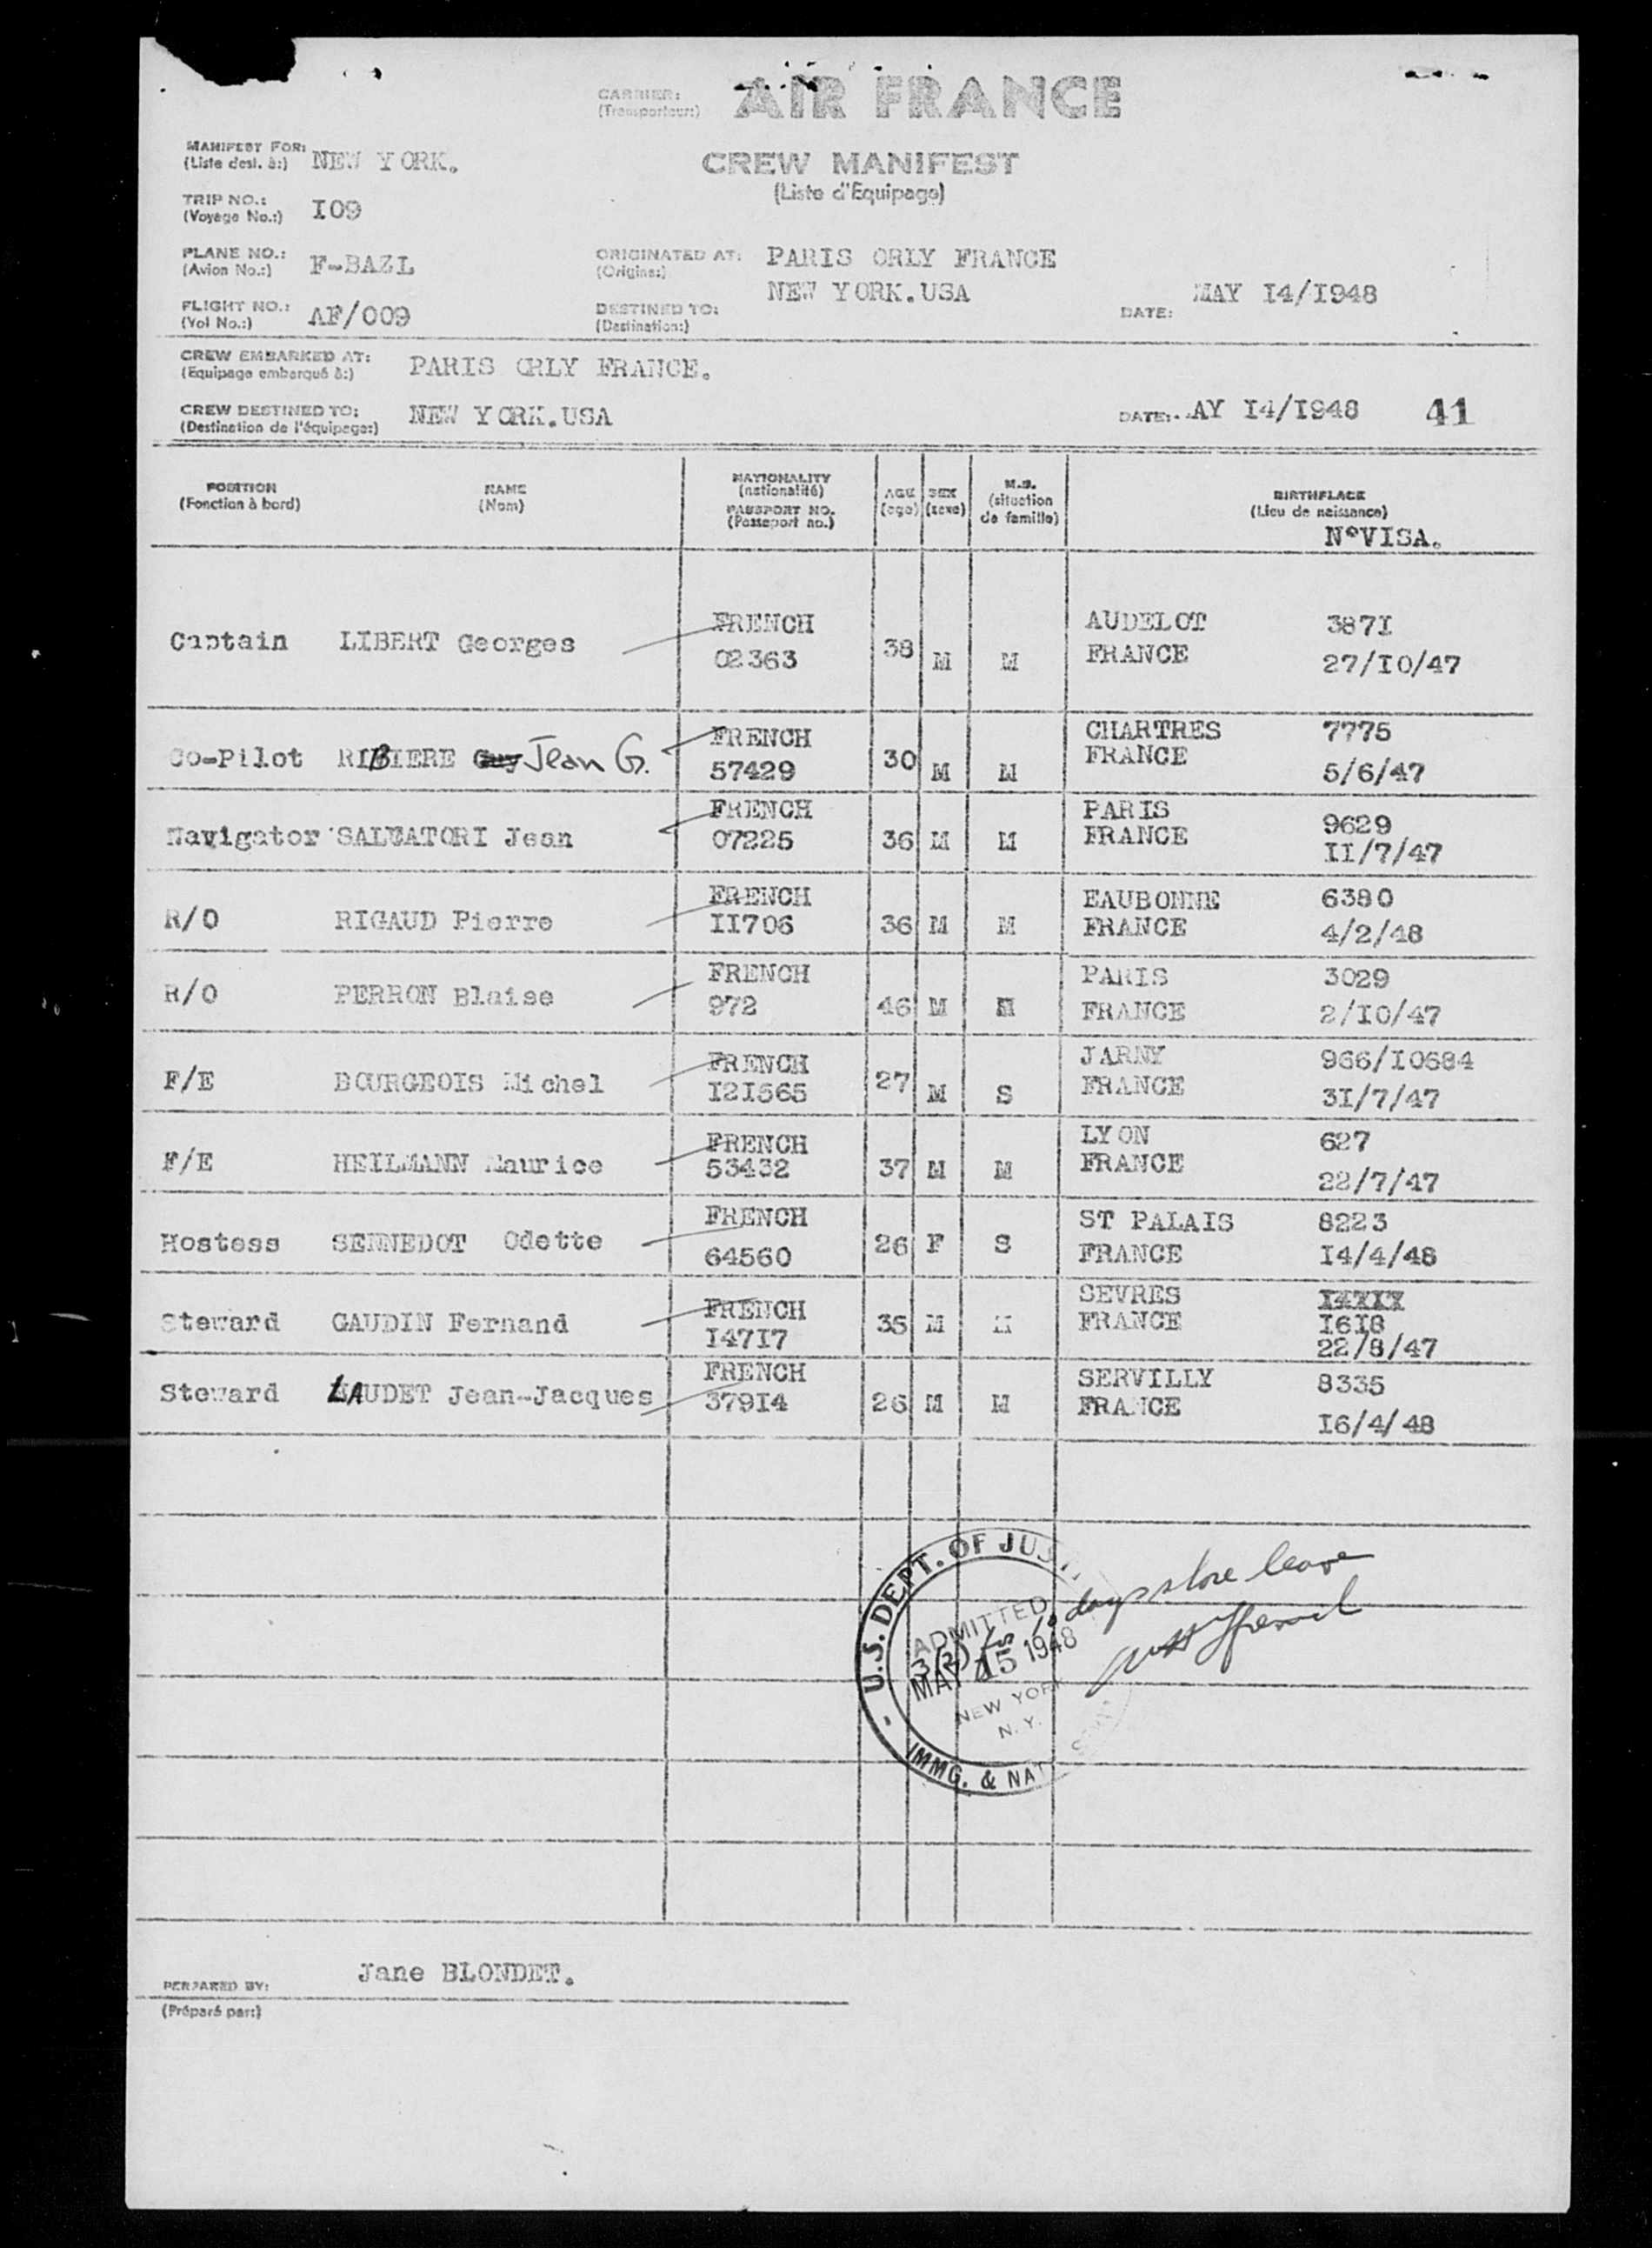 CARRIER: AIR FRANCE
(Transporteur:)
MANIFEST FOR: NEW YORK.
(Liste dest. à:)
CREW MANIFEST
(Liste d'Equipage)
TRIP NO.: I09
(Voyage No.:)
PLANE NO.: F-BAZL
(Avion No.:)
ORIGINATED AT: PARIS ORLY FRANCE
(Origine:)
FLIGHT NO.: AF/009
(Vol No.:)
NEW YORK.USA
DESTINED TO:
(Destination:)
DATE: MAY I4/I948
CREW EMBARKED AT: PARIS ORLY FRANCE.
(Equipage embarqué à:)
CREW DESTINED TO: NEW YORK.USA
(Destination de l'équipage:)
DATE: AY I4/I948 41
POSITION
(Fonction à bord)
NAME
(Nom)
NATIONALITY
(nationalité)
PASSPORT NO.
(Passeport no.)
AGE
(age)
SEX
(sexe)
M.S.
(situation
de famille)
BIRTHPLACE
(Lieu de naissance)
N°VISA.
Captain LIBERT Georges FRENCH 38 M M AUDELOT 387I
02363 FRANCE 27/I0/47
Co-Pilot RIBIERE Guy Jean G. FRENCH 30 M M CHARTRES 7775
57429 FRANCE 5/6/47
Navigator SALVATORI Jean FRENCH 36 M M PARIS 9629
07225 FRANCE II/7/47
R/O RIGAUD Pierre FRENCH 36 M M EAUBONNE 6380
II706 FRANCE 4/2/48
R/O PERRON Blaise FRENCH 46 M M PARIS 3029
972 FRANCE 2/I0/47
F/E BOURGEOIS Michel FRENCH 27 M S JARNY 966/I0684
I2I565 FRANCE 3I/7/47
F/E HEILMANN Maurice FRENCH 37 M M LYON 627
53432 FRANCE 22/7/47
Hostess SENNEDOT Odette FRENCH 26 F S ST PALAIS 8223
64560 FRANCE I4/4/48
Steward GAUDIN Fernand FRENCH 35 M M SEVRES
I47I7 FRANCE I6I8
22/8/47
Steward LAUDET Jean-Jacques FRENCH 26 M M SERVILLY 8335
379I4 FRANCE I6/4/48
U.S. DEPT. OF JUS
ADMITTED
MAY 15 1948
NEW YORK
N.Y.
IMMG. & NAT
days shore leave
Jane BLONDET.
PERPARED BY:
(Préparé par:)